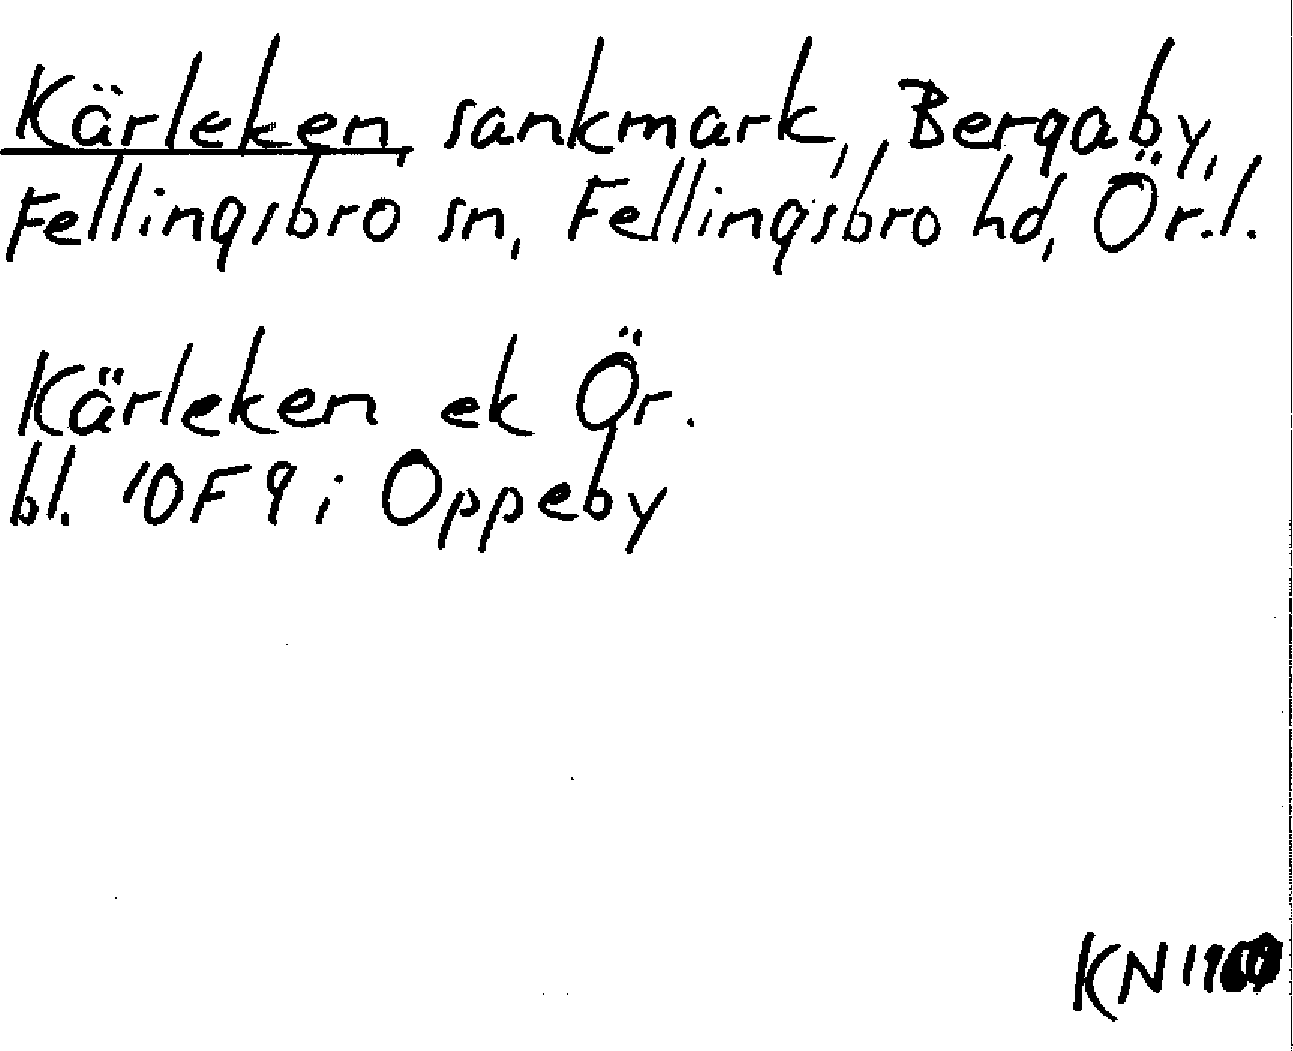 Kärleken, sankmark, Bergaby,
Fellingsbro sn, Fellingsbro hd, Ör.l.
Kärleken ek Ör.
bl. 10F9i Oppeby
KN